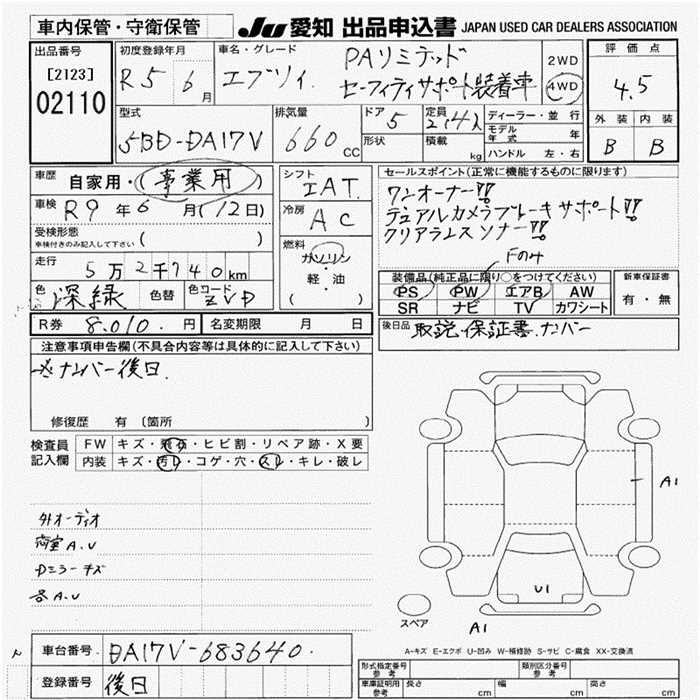 車内保管・守衛保管
JU 愛知 出品申込書 JAPAN USED CAR DEALERS ASSOCIATION
出品番号
[2123]
02110
初度登録年月
R5 6月
車名・グレード
エブリイ
PAリミテッド
セーフィティサポート装着車
2WD
4WD
評価点
4.5
外装 内装
B B
型式
5BD-DA17V
排気量
660 cc
ドア 5
形状
定員 2/4人
積載 kg
ディーラー・並行
モデル年式 年
ハンドル 左・右
車歴 自家用・(事業用)
車検 R9年6月(12日)
受検形態
車検付きのみ記入して下さい ( )
走行 5万2千740km
色 深緑 色替 色コード ZVD
R券 8,010.円 名変期限 月 日
シフト
IAT
冷房
AC
燃料
ガソリン
・
軽油
( )
セールスポイント(正常に機能するものに限ります)
ワンオーナー!!
デュアルカメラブレーキサポート!!
クリアランスソナー!!
Fのみ
装備品(純正品に限り○をつけてください)
PS PW エアB AW
SR ナビ TV カワシート
新車保証書
有・無
後日品 取説・保証書・ナンバー
注意事項申告欄(不具合内容等は具体的に記入して下さい)
※ナンバー後日.
修復歴 有 〔箇所 〕
検査員記入欄
FW キズ・飛石・ヒビ割・リペア跡・X要
内装 キズ・汚れ・コゲ・穴・スレ・キレ・破レ
外オーディオ
荷室A.U
Dミラーキズ
各A.U
A1
U1
A1
スペア
A-キズ E-エクボ U-凹み W-補修跡 S-サビ C-腐食 XX-交換済
車台番号 DA17V-683640.
登録番号 後日
形式指定番号 参考
類別区分番号 参考
車庫証明用 参考 長さ cm 幅 cm 高さ cm